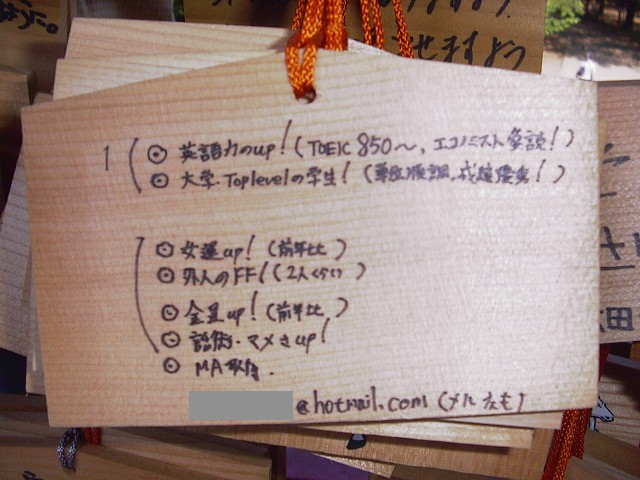 ように。
せますよう
1
⊙ 英語力のup!(TOEIC 850〜, エコノミスト愛読!)
⊙ 大学・Toplevelの学生!(単位順調, 成績優秀!)
⊙ 女運up!(前年比)
⊙ 外人のFF!(2人くらい)
⊙ 金運up!(前年比)
⊙ 話術・マメさup!
⊙ MA取得.
@hotmail.com (メル友も)
田